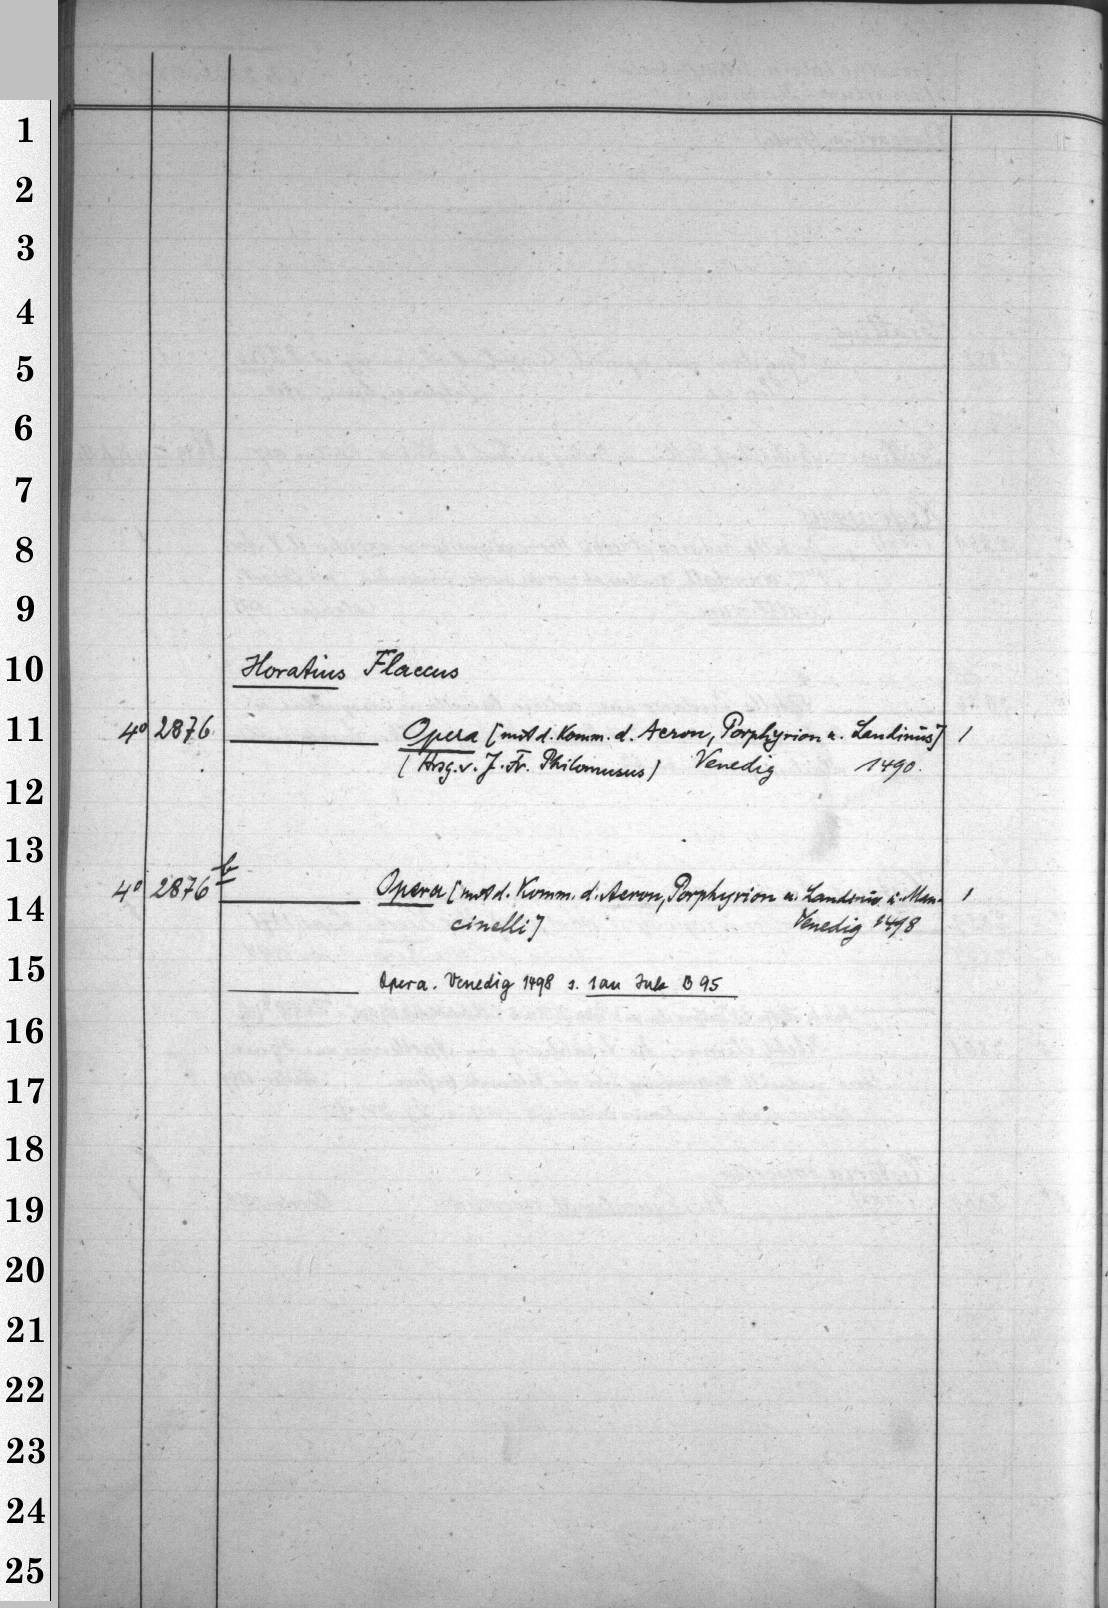 1
2
3
4
5
6
7
8
9
10 Horatius Flaccus
11 4° 2876 Opera [mit d. Komm. d. Acron, Porphyrion u. Landinus] 1
12 (Hrsg. v. J. Fr. Philomusus) Venedig 1490.
13
14 4° 2876 b Opera [mit d. Komm. d. Acron, Porphyrion u. Landinus u. Man-
cinelli] Venedig 1498 1
15 Opera. Venedig 1498 s. 1 an Inkr B 95
16
17
18
19
20
21
22
23
24
25